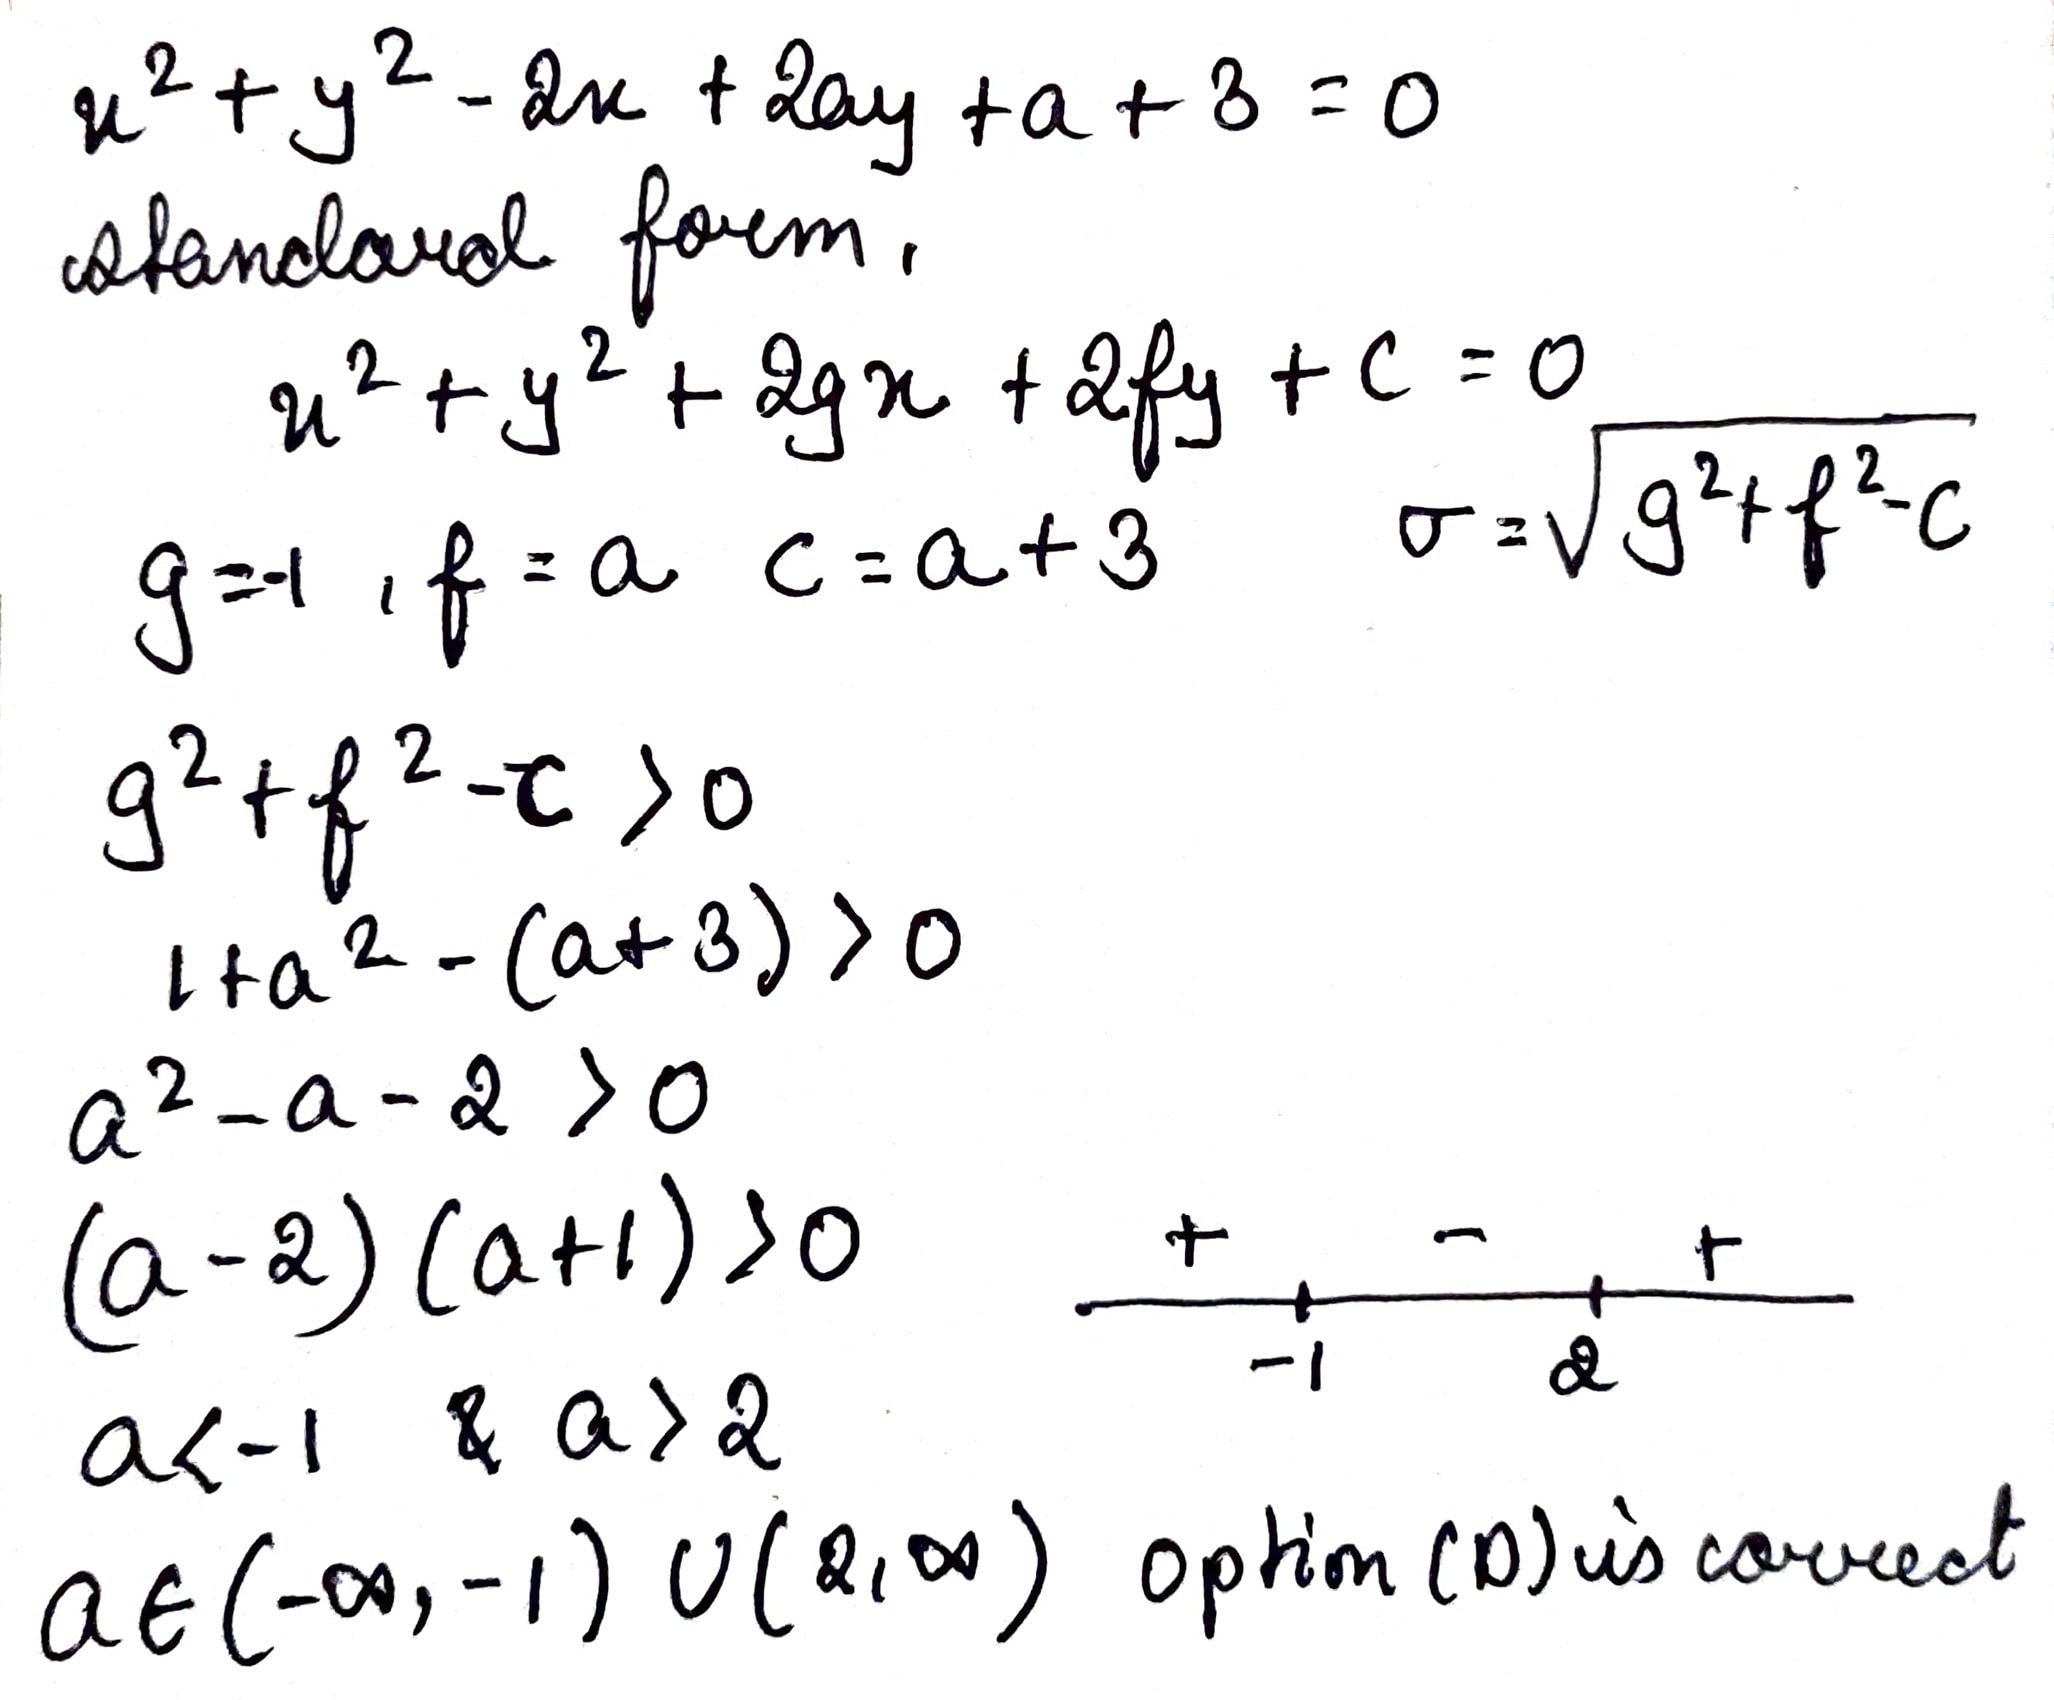 x² + y² - 2x + 2ay + a + 3 = 0
standard form,
x² + y² + 2gx + 2fy + c = 0
g = -1, f = a c = a + 3 r = √(g² + f² - c)
g² + f² - c > 0
1 + a² - (a + 3) > 0
a² - a - 2 > 0
(a - 2) (a + 1) > 0 + - +
-1 2
a < -1 & a > 2
a ∈ (-∞, -1) ∪ (2, ∞) option (D) is correct